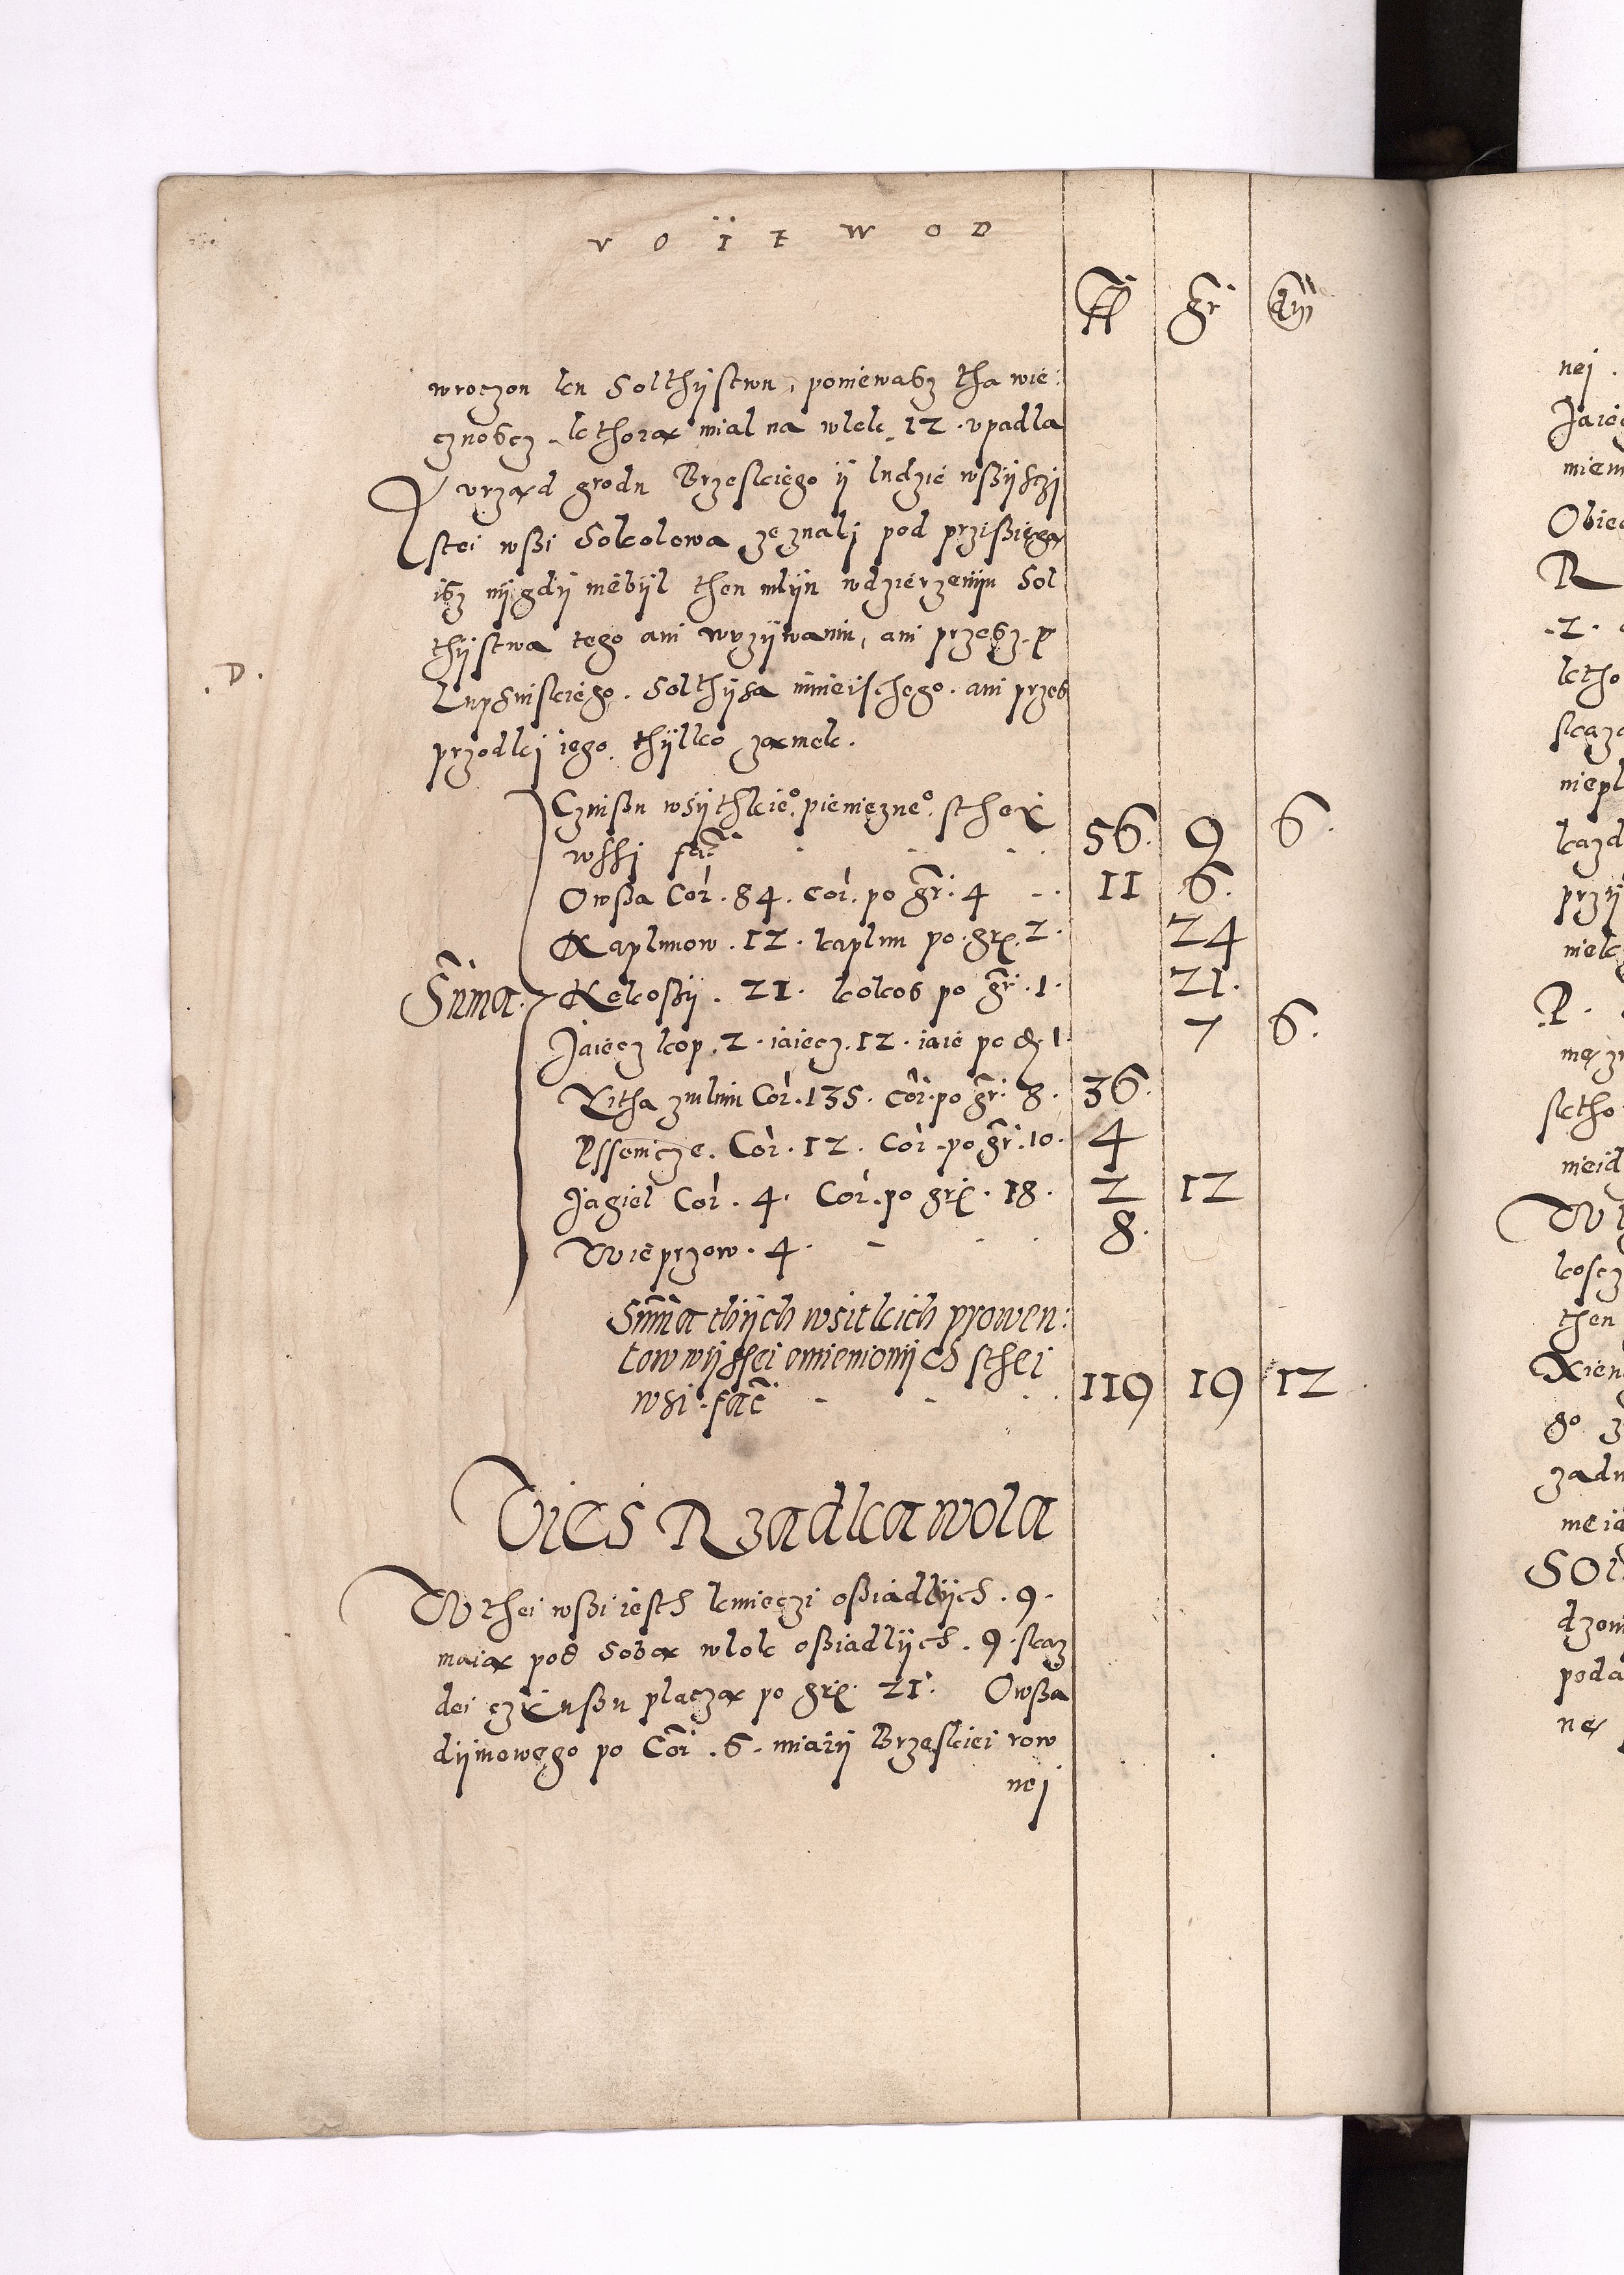 V O Ï T W O D
fl gr dn
wroczon ku Solthÿstwu, poniewasz tha wie:
cznoscz kthorą mial na wlok 12. upadla
Y vrząd grodu Brzeskiego ÿ ludzie wßÿsczj
stei wßi Sokolowa zeznalj pod przißięgą
isz nÿgdÿ niebÿl then mlÿn wdzierzenÿu Sol
thÿstwa tego ani wvzÿwaniu, ani przesz p
.D.
Lupsinskiego. Solthÿsa ninieischego. ani przes
przodkj iego. thÿlko zamek.
Summa.
Czinßu wsÿthkieo. pienięzneo. sthei
wssj facit 56. 9 6.
Owßa Cor. 84. cor. po gr. 4 11 6.
Kaplunow. 12. kaplun po. gr. 2. 24
Kokoßÿ. 21. kokos po gr. 1. 21.
Jaiecz kop. 2. iaiecz. 12. iaie po d. 1. 7 6.
Zitha zmlinu Cor. 135. cor. po gr. 8. 36.
Pssenicze. Cor. 12. Cor. po gr. 10. 4
Jagiel Cor. 4. Cor. po gr. 18. 2 12
Wieprzow. 4. 8.
Summa thÿch wsitkich prowen:
tow wÿssei omienionÿch sthei
wsi. facit 119 19 12
Vies Rzadka wola
W thei wßi iesth kmieczi oßiadlÿch. 9.
maią pod sobą wlok oßiadlÿch. 9. skaz
dei czinßu placzą po gr. 21. Owßa
dÿmowego po Cor. 6. miarÿ Brzeskiei row
nej